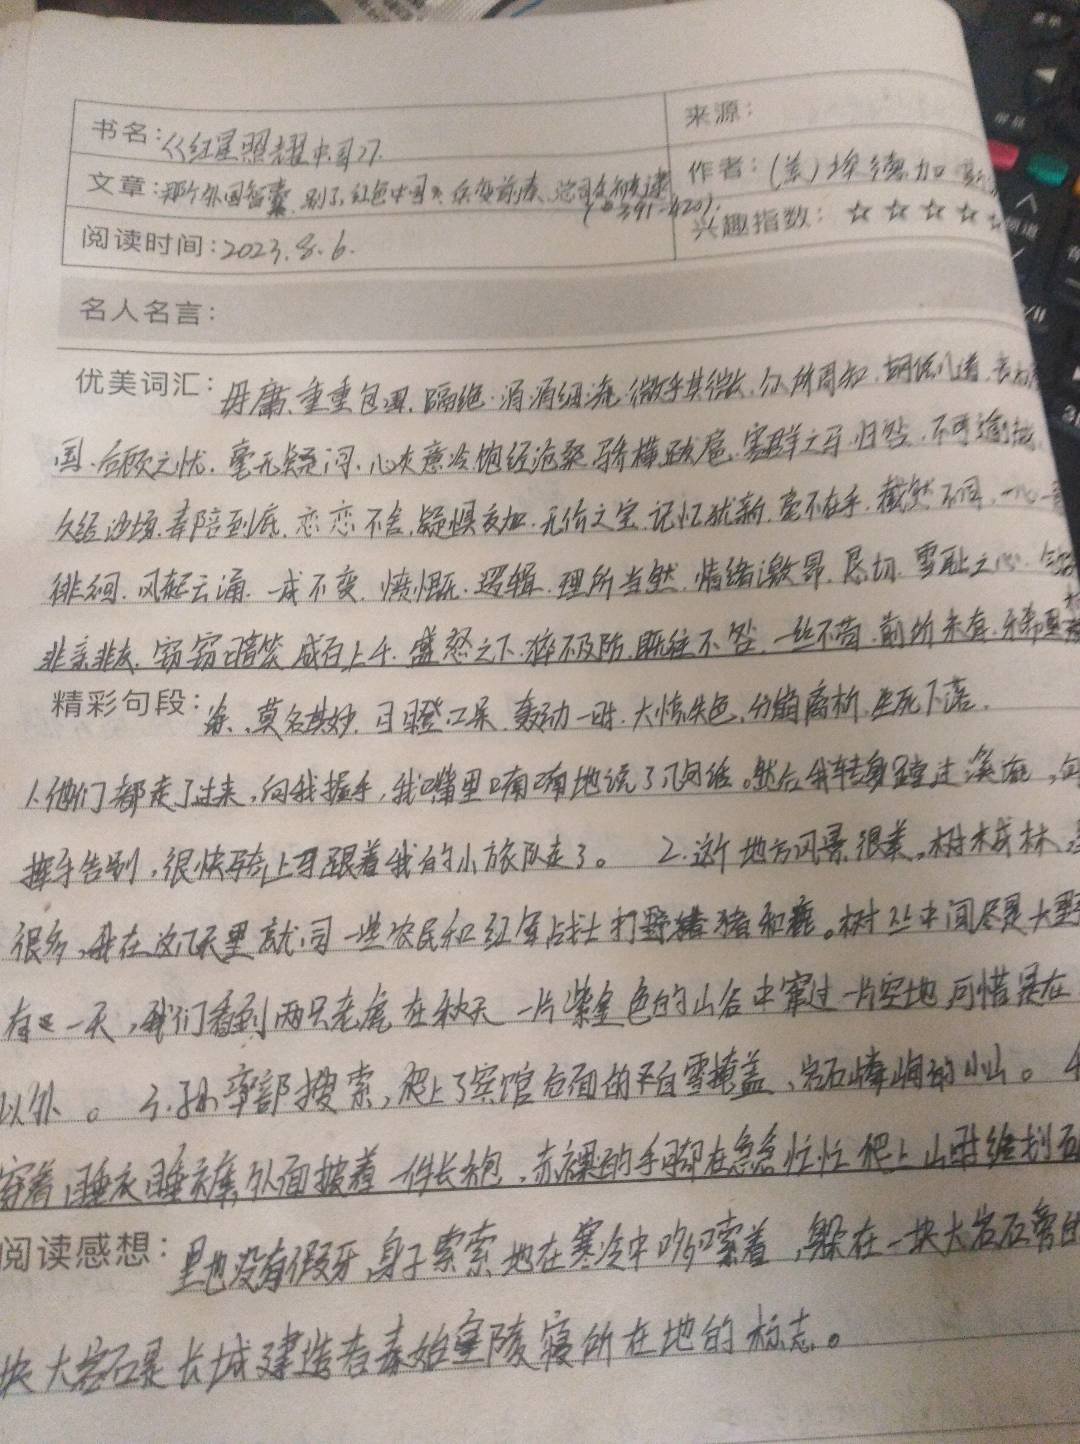 书名：《红星照耀中国》
来源：
文章：那个外国智囊、别了，红色中国、兵变前奏、总司令被逮 (P391-420)
作者：(美)埃德加
阅读时间：2023.8.6.
兴趣指数：☆☆☆☆
名人名言：
优美词汇：毋庸、重重包围、隔绝、涓涓细流、微乎其微、众所周知、胡说八道、
后顾之忧、毫无疑问、心灰意冷、饱经沧桑、骄横跋扈、害群之马、归咎、不可逾越
久经沙场、奉陪到底、恋恋不舍、疑惧交加、无价之宝、记忆犹新、毫不在乎、截然不同、一心一
徘徊、风起云涌、一成不变、愤慨、逻辑、理所当然、情绪激昂、恳切、雪耻之心、
非亲非友、窃窃暗笑、成百上千、盛怒之下、猝不及防、既往不咎、一丝不苟、前所未有、
精彩句段：莫名其妙、目瞪口呆、轰动一时、大惊失色、分崩离析、生死下落.
1.他们都走了过来，向我握手，我嘴里喃喃地说了几句话。然后我转身蹚过溪流，向
挥手告别，很快骑上马跟着我的小旅队走了。 2.这个地方风景很美，树木成林，
很多，我在这几天里就同一些农民和红军战士打野猪和鹿。树丛中间尽是大野
有一天，我们看到两只老虎在秋天一片紫金色的山谷中窜过一片空地，可惜是在
以外。 3.孙率部搜索，爬上了宾馆后面的平白雪掩盖、岩石嶙峋的小山。 4
穿着睡衣睡裤，外面披着一件长袍，赤裸的手脚在急急忙忙爬上山时给划
阅读感想：里也没有假牙，身子索索地在寒冷中哆嗦着，躲在一块大岩石旁的
块大岩石是长城建造者秦始皇陵寝所在地的标志。